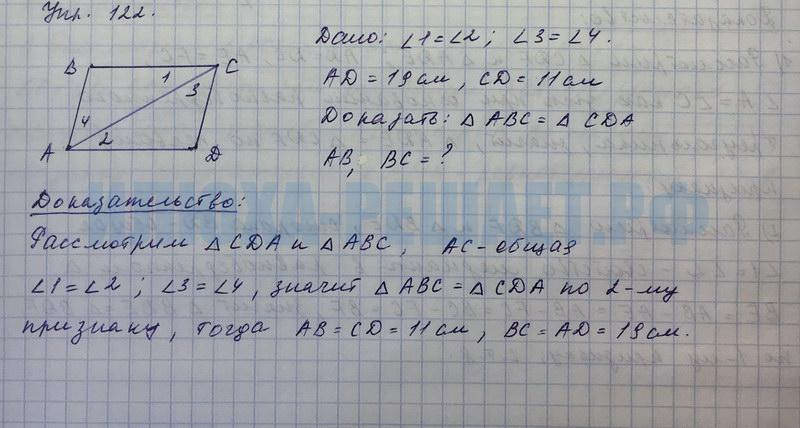 Упр. 122.
Дано: ∠1=∠2; ∠3=∠4.
AD = 19см, CD = 11см
Доказать: △ ABC = △ CDA
AB, BC = ?
B
C
1
3
4
2
A
D
Доказательство:
Рассмотрим △ CDA и △ ABC, AC - общая
∠1=∠2; ∠3=∠4, значит △ ABC = △ CDA по 2-му
признаку, тогда AB = CD = 11см, BC = AD = 19см.